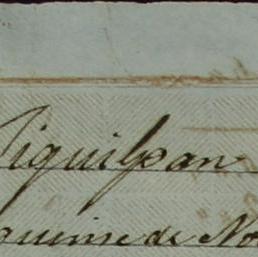 Jiquilpan
quince de No